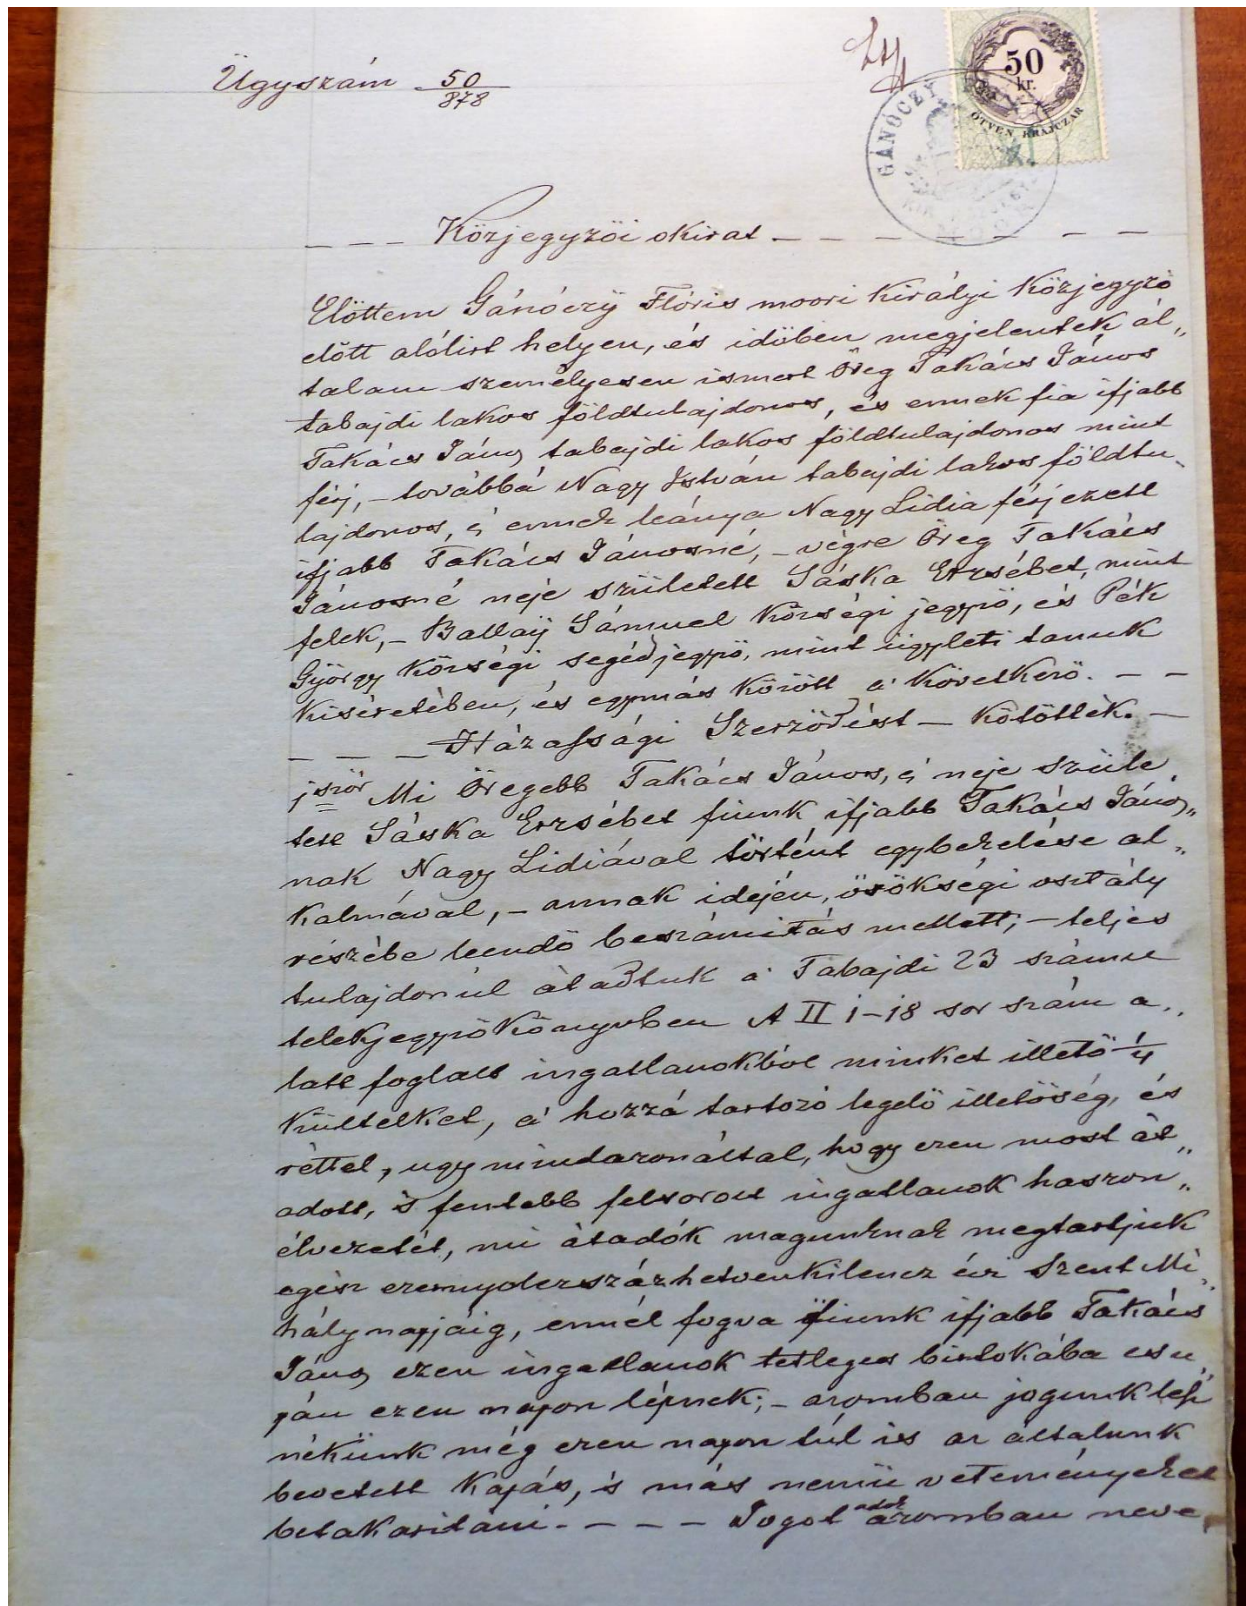 Ügyszám 50/878
50
kr.
ÖTVEN KRAJCZÁR
GÁNÓCZY
– – – Közjegyzői okirat – – – – – –
Előttem Gánóczÿ Flóris moori királyi közjegyző
előtt alólirt helyen, és időben megjelentek ál„
talam személyesen ismert Öreg Takács János
tabajdi lakos földtulajdonos, és ennek fia ifjabb
Takács János tabajdi lakos földtulajdonos mint
férj, – továbbá Nagy István tabajdi lakos földtu„
lajdonos, és ennek leánya Nagy Lidia férjezett
ifjabb Takács Jánosné, – végre Öreg Takács
Jánosné neje született Sáska Erzsébet, mint
felek, – Ballaÿ Sámuel községi jegyző, és Pék
György községi segédjegyző, mint ügyleti tanuk
kiséretében, és egymás között a' következő. – –
– – – Házassági Szerződést – kötötték. –
1ször Mi Öregebb Takács János, és neje szüle„
tett Sáska Erzsébet fiunk ifjabb Takács János„
nak Nagy Lidiával történt egybekelése al„
kalmával, – annak idején, örökségi osztály
részébe leendő beszámitás mellett; – teljes
tulajdonúl átadtuk a' Tabajdi 23 számu
telekjegyzőkönyvben A II 1–18 sor szám a„
latt foglalt ingatlanokból minket illető 1/4
kültelket, a' hozzá tartozó legelő illetőség, és
réttel, ugy mindazonáltal, hogy ezen most át„
adott, s fentebb felsorolt ingatlanok haszon„
élvezetét, mi átadók magunknak megtartjuk
egész ezernyolczszázhetvenkilencz évi Szent Mi„
hály napjáig, ennél fogva fiunk ifjabb Takács
János ezen ingatlanok tetleges birtokába csu„
pán ezen napon lépnek; – azomban jogunk lesz
nékünk még ezen napon túl is az általunk
bevetett kapás, s más nemü veteményeket
betakaritani. – – – – Jogot adok azomban neve„